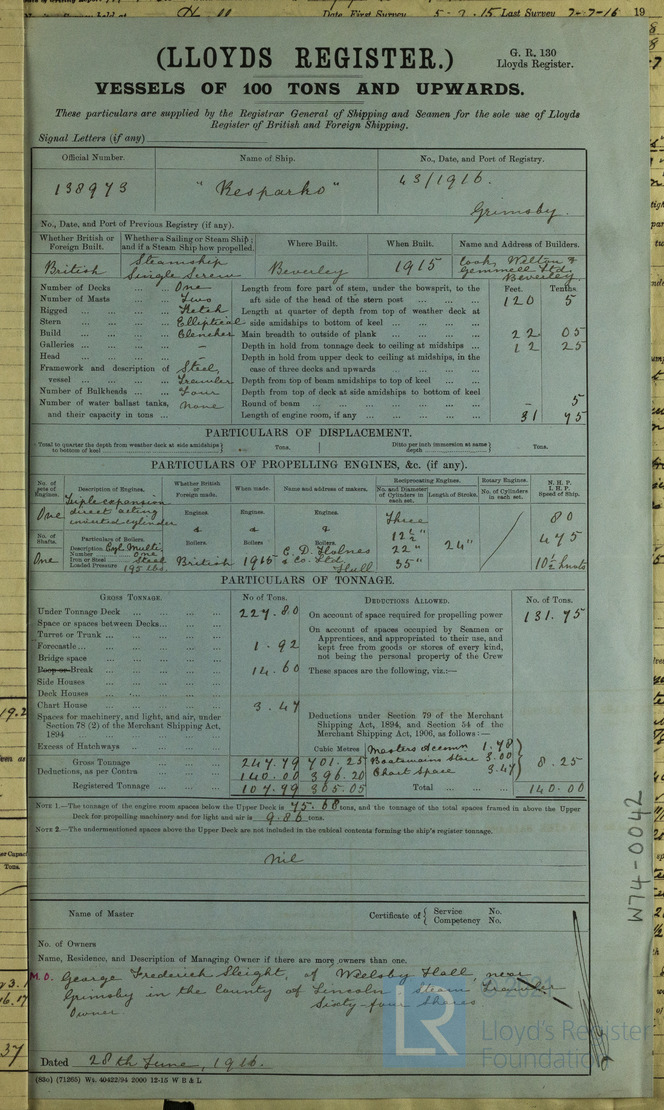 Date, First Survey 5-7.15 Last Survey 7-7-16 19
(LLOYDS REGISTER.)
G. R. 130
Lloyds Register.
VESSELS OF 100 TONS AND UPWARDS.
These particulars are supplied by the Registrar General of Shipping and Seamen for the sole use of Lloyds
Register of British and Foreign Shipping.
Signal Letters (if any)
Official Number. Name of Ship. No., Date, and Port of Registry.
138973 "Resparko" 43/1916.
Grimsby.
No., Date, and Port of Previous Registry (if any).
Whether British or Foreign Built. Whether a Sailing or Steam Ship; and if a Steam Ship how propelled. Where Built. When Built. Name and Address of Builders.
British Steamship Single Screw Beverley 1915 Cook, Welton & Gemmell Ltd Beverley
Number of Decks One Length from fore part of stem, under the bowsprit, to the Feet. Tenths.
Number of Masts Two aft side of the head of the stern post 120 5
Rigged Ketch Length at quarter of depth from top of weather deck at
Stern Elliptical side amidships to bottom of keel
Build Clencher Main breadth to outside of plank 22 05
Galleries - Depth in hold from tonnage deck to ceiling at midships 12 25
Head - Depth in hold from upper deck to ceiling at midships, in the
Framework and description of Steel case of three decks and upwards
vessel Trawler Depth from top of beam amidships to top of keel
Number of Bulkheads Four Depth from top of deck at side amidships to bottom of keel
Number of water ballast tanks, none Round of beam - 5
and their capacity in tons Length of engine room, if any 31 75
PARTICULARS OF DISPLACEMENT.
Total to quarter the depth from weather deck at side amidships to bottom of keel Tons. Ditto per inch immersion at same depth Tons.
PARTICULARS OF PROPELLING ENGINES, &c. (if any).
No. of sets of Engines. Description of Engines. Whether British or Foreign made. When made. Name and address of makers. Reciprocating Engines. Rotary Engines. N. H. P. I. H. P. Speed of Ship.
No. and Diameter of Cylinders in each set. Length of Stroke. No. of Cylinders in each set.
One Triple expansion direct acting inverted cylinder Engines. & Engines. & Engines. & Three 80
No. of Shafts. Particulars of Boilers. Boilers. Boilers. Boilers. 12½" 24" 475
One Description Cyl. Multi. British 1915 C. D. Holmes & Co. Ltd Hull 22" 10½ knots
Number One 35"
Iron or Steel Steel
Loaded Pressure 195 lbs.
PARTICULARS OF TONNAGE.
GROSS TONNAGE. No of Tons. DEDUCTIONS ALLOWED. No. of Tons.
Under Tonnage Deck 227.80 On account of space required for propelling power 131.75
Space or spaces between Decks
Turret or Trunk
Forecastle 1.92
Bridge space
Poop or Break 14.60
Side Houses
Deck Houses
Chart House 3.47
Spaces for machinery, and light, and air, under
Section 78 (2) of the Merchant Shipping Act,
1894
Excess of Hatchways
On account of spaces occupied by Seamen or
Apprentices, and appropriated to their use, and
kept free from goods or stores of every kind,
not being the personal property of the Crew
These spaces are the following, viz.:—
Deductions under Section 79 of the Merchant
Shipping Act, 1894, and Section 54 of the
Merchant Shipping Act, 1906, as follows:—
Cubic Metres Masters Accomn 1.78
Gross Tonnage 247.79 701.25 Boatswains Store 3.00 8.25
Deductions, as per Contra 140.00 396.20 Chart Space 3.47
Registered Tonnage 107.79 305.05 Total 140.00
NOTE 1.—The tonnage of the engine room spaces below the Upper Deck is 75.68 tons, and the tonnage of the total spaces framed in above the Upper
Deck for propelling machinery and for light and air is 9.86 tons.
NOTE 2.—The undermentioned spaces above the Upper Deck are not included in the cubical contents forming the ship's register tonnage.
nil
Name of Master Certificate of Service No.
Competency No.
No. of Owners
Name, Residence, and Description of Managing Owner if there are more owners than one.
M.O. George Frederick Sleight, of Weelsby Hall, near
Grimsby in the County of Lincoln Steam Trawler
Owner. Sixty-four Shares
Dated 28th June, 1916.
(830) (71265) Wt. 40422/94 2000 12-15 W B & L
W74-0042
© 2021
LR
Lloyd's Register
Foundation